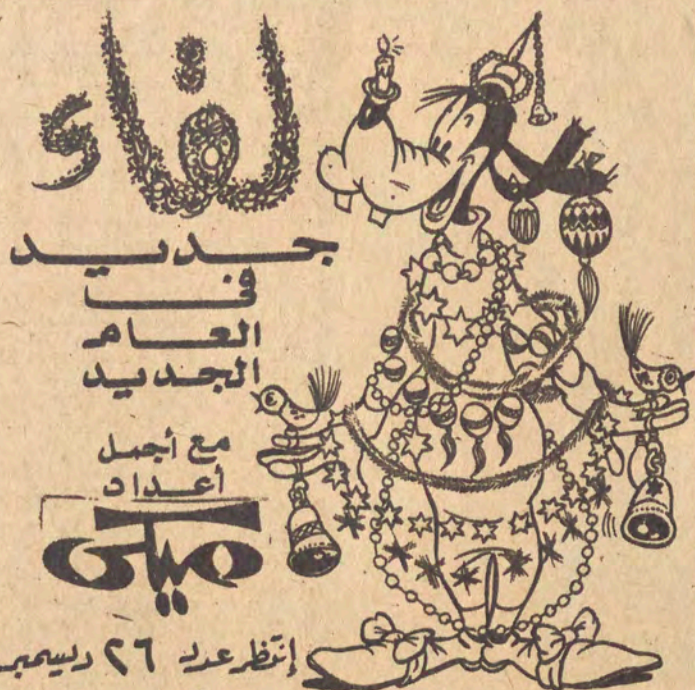 لقاء
جديد
في
العام
الجديد
مع أجمل
أعداد
ميكي
إنتظر عدد ٢٦ ديسمبر